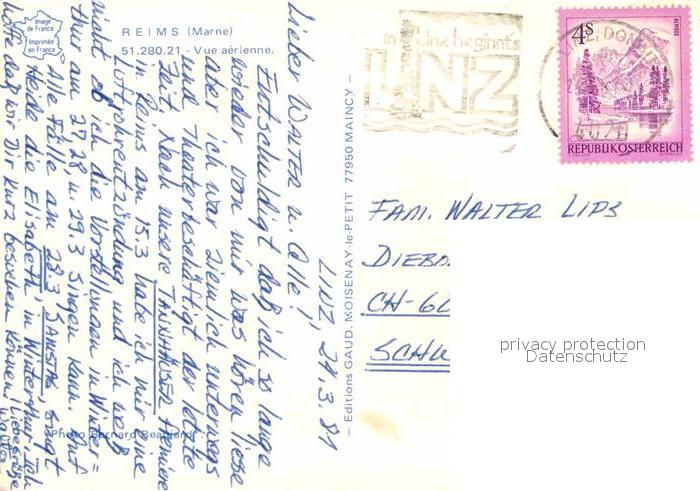 Image
de France
Imprimée
en France
REIMS (Marne)
51.280.21 - Vue aérienne.
LINZ, 21.3.81
Lieber WALTER u. Alle!
Entschuldigt daß ich so lange
wieder von mir was hören liesse
aber ich war ziemlich unterwegs
und Theaterbeschäftigt der letzte
Zeit. Nach unsere TANNHÄUSER Premiere
in Reims am 15.3 habe ich mir eine
Luftröhrentzündung und ich weiß
nicht ob ich die Vorstellungen in Winter=
thur am 27 28, u. 29.3 singen kann. Auf
Alle Fälle am 28.3 SAMSTAG singt
Heide die Elisabeth in Winterthur. Ich
hoffe daß wir Dir kurz besehen können! Liebe Grüße
Photo Bernard Beaujard
— Editions GAUD. MOISENAY-le-PETIT 77950 MAINCY —
in Linz beginnt's
LINZ
4S
ALMSEE
REPUBLIK ÖSTERREICH
FAM. WALTER LIPS
DIEB
CH-60
SCHW
privacy protection
Datenschutz